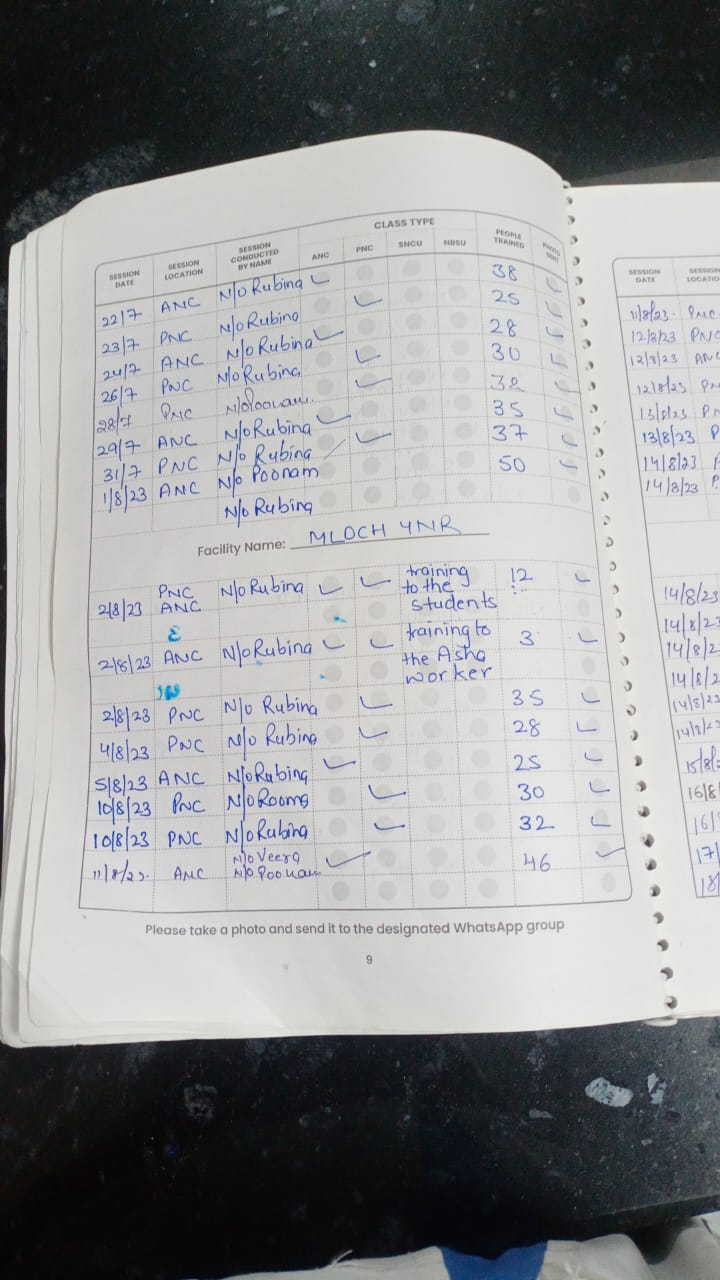 CLASS TYPE
SESSION DATE SESSION LOCATION SESSION CONDUCTED BY NAME ANC PNC SNCU NBSU PEOPLE TRAINED PHOTO SENT
22/7 ANC N/o Rubina 38
23/7 PNC N/o Rubina 25
24/7 ANC N/o Rubina 28
26/7 PNC N/o Rubina 30
28/7 PNC N/o Poonam 32
29/7 ANC N/o Rubina 35
31/7 PNC N/o Rubina 37
1/8/23 ANC N/o Poonam 50
N/o Rubina
Facility Name: MLDCH YNR
2/8/23 PNC ANC N/o Rubina training to the students 12
2/8/23 ANC N/o Rubina training to the Asha worker 3
2/8/23 PNC N/o Rubina 35
4/8/23 PNC N/o Rubina 28
5/8/23 ANC N/o Rubina 25
10/8/23 PNC N/o Rooma 30
10/8/23 PNC N/o Rubina 32
11/8/23. ANC N/o Veera N/o Poonam 46
Please take a photo and send it to the designated WhatsApp group
9
SESSION DATE SESSION
11/8/23. PNC
12/8/23 PNC
12/8/23 ANC
12/8/23
13/8/23
13/8/23
14/8/23
14/8/23
14/8/23